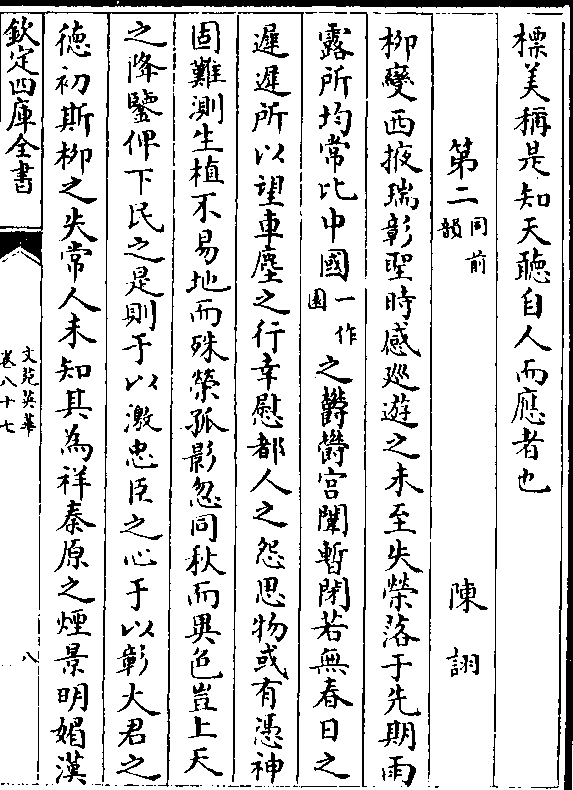 標美稱是知天聽自人而應者也
第二同前韻 陳詡
柳變西掖瑞彰聖時感巡遊之未至失榮落于先期雨
露所均常比中國一作園之欝欝宮闈暫閉若無春日之
遲遲所以望車塵之行幸慰都人之怨思物或有憑神
固難測生植不易地而殊榮孤影忽同秋而異色豈上天
之降鑒俾下民之是則于以激忠臣之心于以彰大君之
德初斯柳之失常人未知其為祥秦原之煙景明媚漢
欽定四庫全書
文苑英華
卷八十七
八